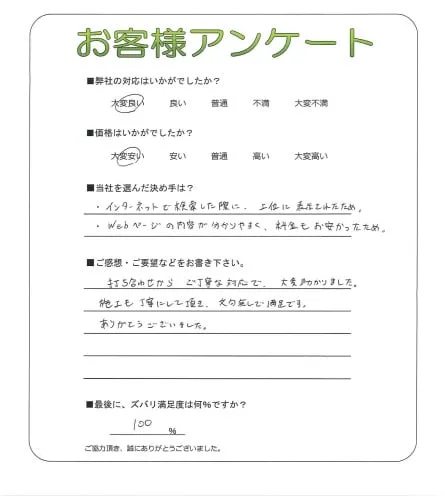 お客様アンケート
■弊社の対応はいかがでしたか?
大変良い 良い 普通 不満 大変不満
■価格はいかがでしたか?
大変安い 安い 普通 高い 大変高い
■当社を選んだ決め手は?
・インターネットで検索した際に、上位に表示されたため。
・Webページの内容が分かりやすく、料金もお安かったため。
■ご感想・ご要望などをお書き下さい。
打ち合わせから ご丁寧な対応で、大変助かりました。
施工も丁寧にして頂き、文句無しで満足です。
ありがとうございました。
■最後に、ズバリ満足度は何%ですか?
100 %
ご協力頂き、誠にありがとうございました。